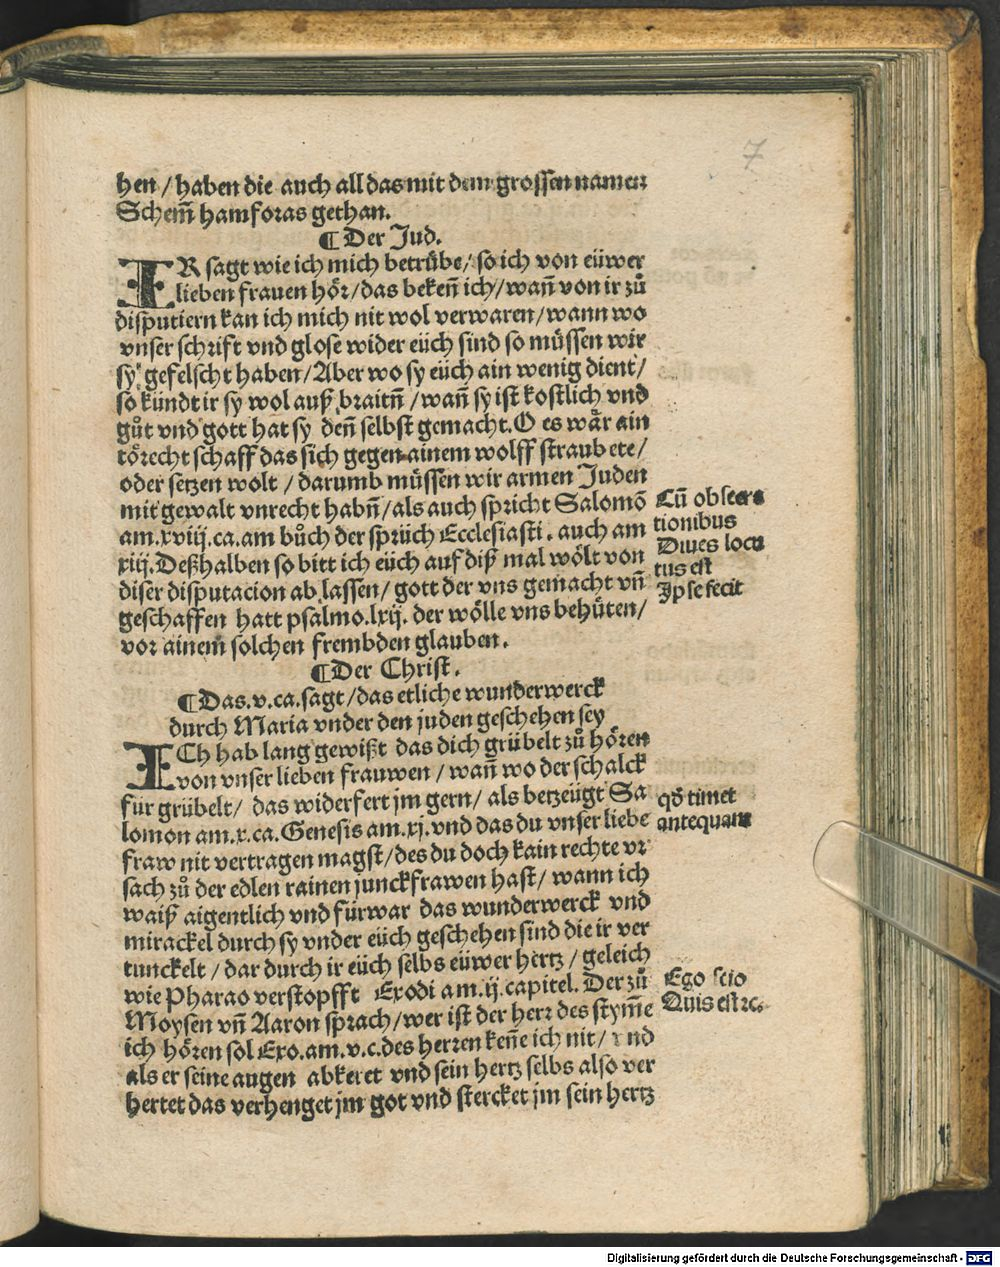 7
hen / haben die auch all das mit dem grossen namen
Schem̃ hamforas gethan.
¶ Der Jud.
IR sagt wie ich mich betrůbe / so ich von eüwer
lieben frauen hör / das bekeñ ich / wañ von ir zů
disputiern kan ich mich nit wol verwaren / wann wo
vnser schrift vnd glose wider eüch sind so müssen wir
sy gefelscht haben / Aber wo sy eüch ain wenig dient /
so kündt ir sy wol auß braitñ / wañ sy ist kostlich vnd
gůt vnd gott hat sy deñ selbst gemacht. O es wår ain
törecht schaff das sich gegen ainem wolff straubete /
oder setzen wolt / darumb müssen wir armen Juden
mit gewalt vnrecht habñ / als auch spricht Salomō
am.xviij.ca.am bůch der sprüch Ecclesiasti. auch am
xiij. Deßhalben so bitt ich eüch auf diß mal wölt von
diser disputacion ab lassen / gott der vns gemacht vñ
geschaffen hatt psalmo.lxij. der wölle vns behüten /
vor ainem solchen frembden glauben.
Cū obsecra
tionibus
Diues locu
tus est
Ipse fecit
¶ Der Christ.
¶ Das.v.ca.sagt / das etliche wunderwerck
durch Maria vnder den juden geschehen sey
ICh hab lang gewißt das dich grübelt zů hören
von vnser lieben frauwen / wañ wo der schalck
für grübelt / das widerfert jm gern / als betzeügt Sa
lomon am.x.ca. Genesis am.xj. vnd das du vnser liebe
fraw nit vertragen magst / des du doch kain rechte vr
sach zů der edlen rainen junckfrawen hast / wann ich
waiß aigentlich vnd fürwar das wunderwerck vnd
mirackel durch sy vnder eüch geschehen sind die ir ver
tunckelt / dar durch ir eüch selbs eüwer hertz / geleich
wie Pharao verstopfft Exodi am.ij.capitel. Der zů
Moysen vñ Aaron sprach / wer ist der herr des stym̃e
ich hören sol Exo.am.v.c.des herren keñe ich nit / vnd
als er seine augen abkeret vnd sein hertz selbs also ver
hertet das verhenget jm got vnd stercket jm sein hertz
qđ timet
antequam
Ego scio
Quis est ꝛc.
Digitalisierung gefördert durch die Deutsche Forschungsgemeinschaft - DFG